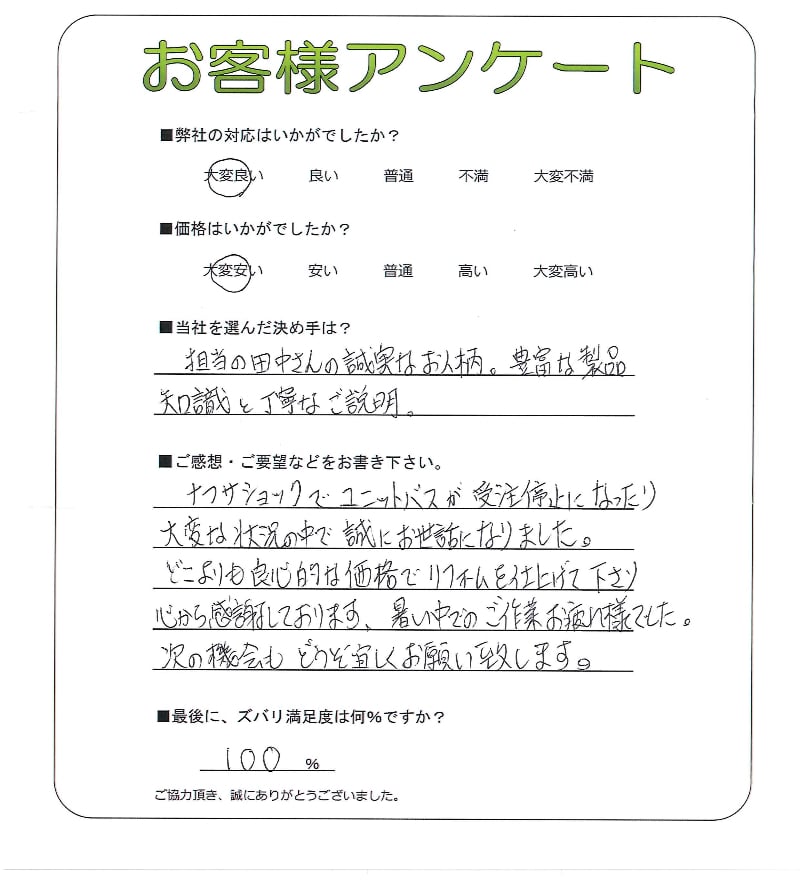 お客様アンケート
■弊社の対応はいかがでしたか？
大変良い 良い 普通 不満 大変不満
■価格はいかがでしたか？
大変安い 安い 普通 高い 大変高い
■当社を選んだ決め手は？
担当の田中さんの誠実なお人柄。豊富な製品
知識と丁寧なご説明。
■ご感想・ご要望などをお書き下さい。
ナフサショックでユニットバスが受注停止になったり
大変な状況の中で誠にお世話になりました。
どこよりも良心的な価格でリフォームを仕上げて下さり
心から感謝しております、暑い中でのご作業お疲れ様でした。
次の機会もどうぞ宜しくお願い致します。
■最後に、ズバリ満足度は何％ですか？
100 ％
ご協力頂き、誠にありがとうございました。